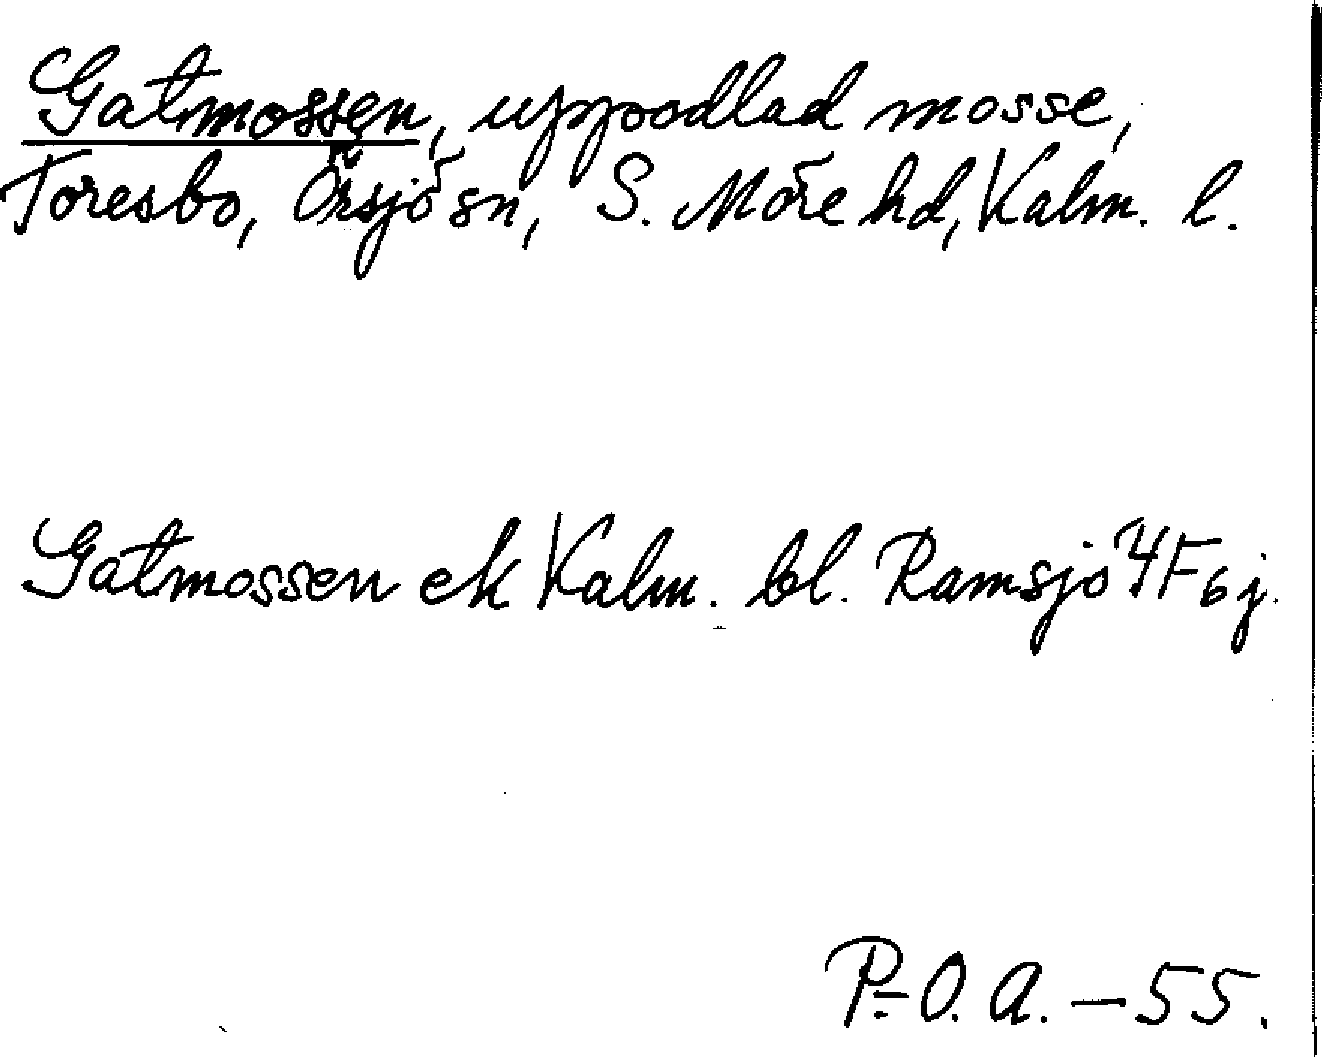 Gatmossen, uppodlad mosse,
Toresbo, Örsjö sn, S. Möre hd, Kalm. l.
Gatmossen ek Kalm. bl. Ramsjö 4F6j.
P.-O. A. – 55.